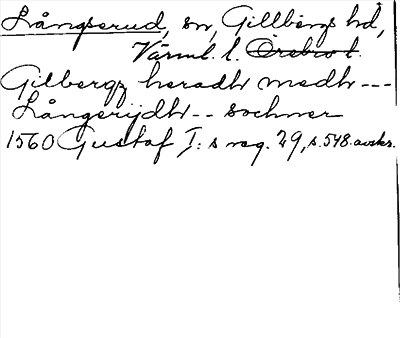 Långserud, sn, Gillbergs hd,
Värml. l. Örebro l.
Gilbergz heradh medh ---
Långerijdh -- sochner
1560 Gustaf I:s reg. 29, s. 548. avskr.